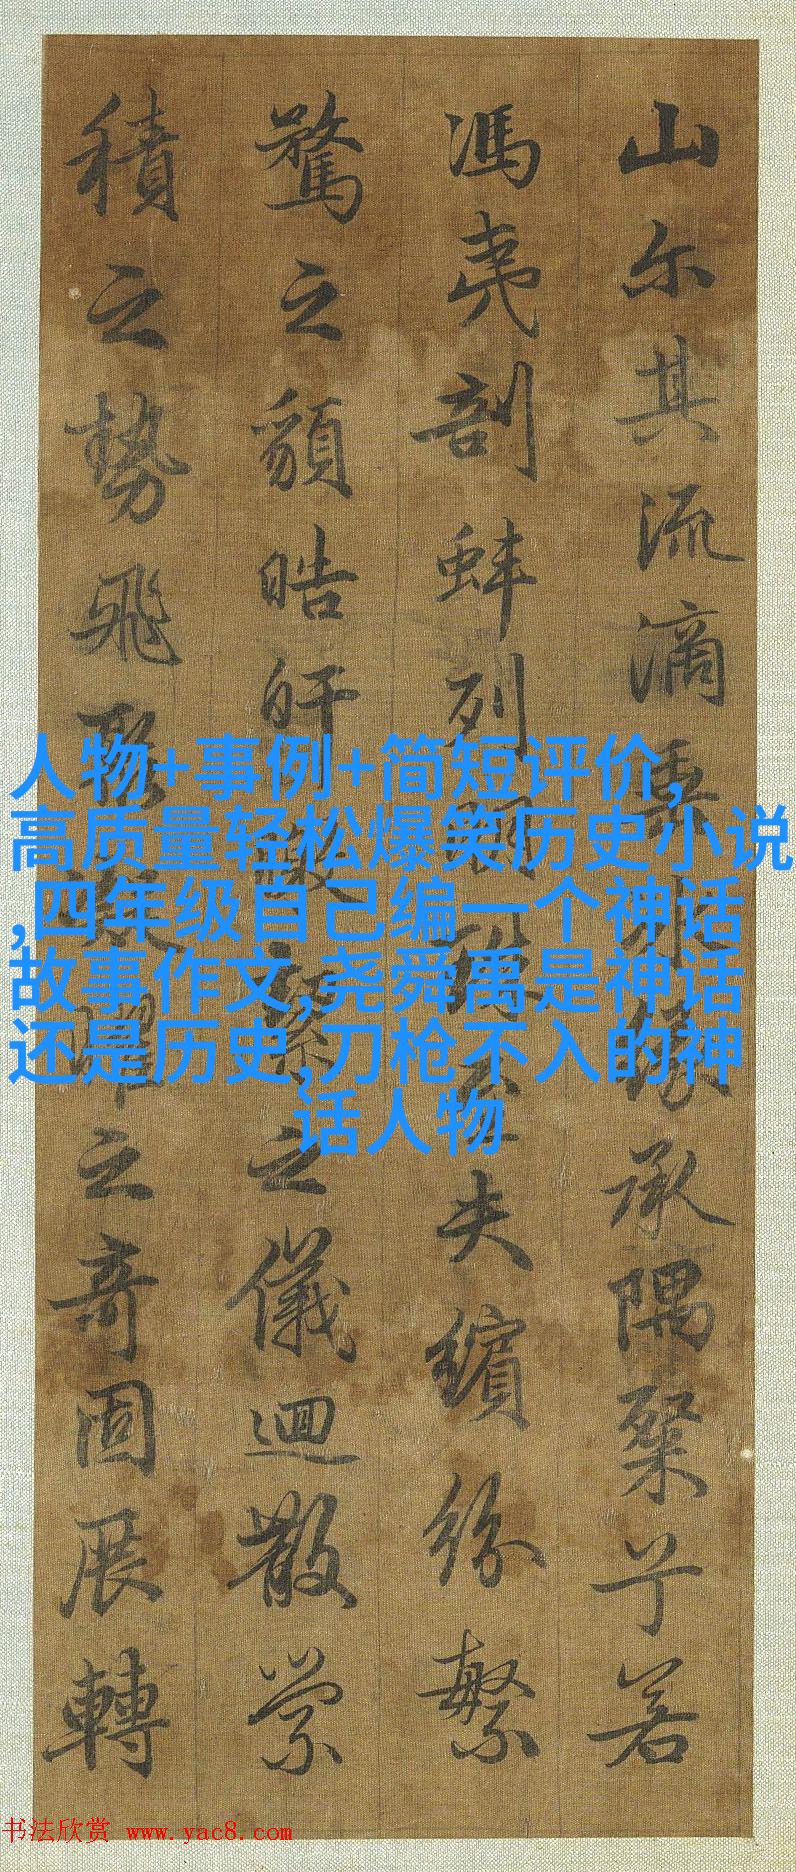 山尔其流滴垂冰緣承隅粲兮若
馮夷剖蚌列明珠至夫繽紛繁
騖之䫉皓旰皦潔之儀迴散縈
積之勢飛聚凝曜之奇固展轉
人物+事例+简短评价,
高质量轻松爆笑历史小说
,四年级自己编一个神话
故事作文,尧舜禹是神话
还是历史,刀枪不入的神
话人物
书法欣赏 www.yac8.com